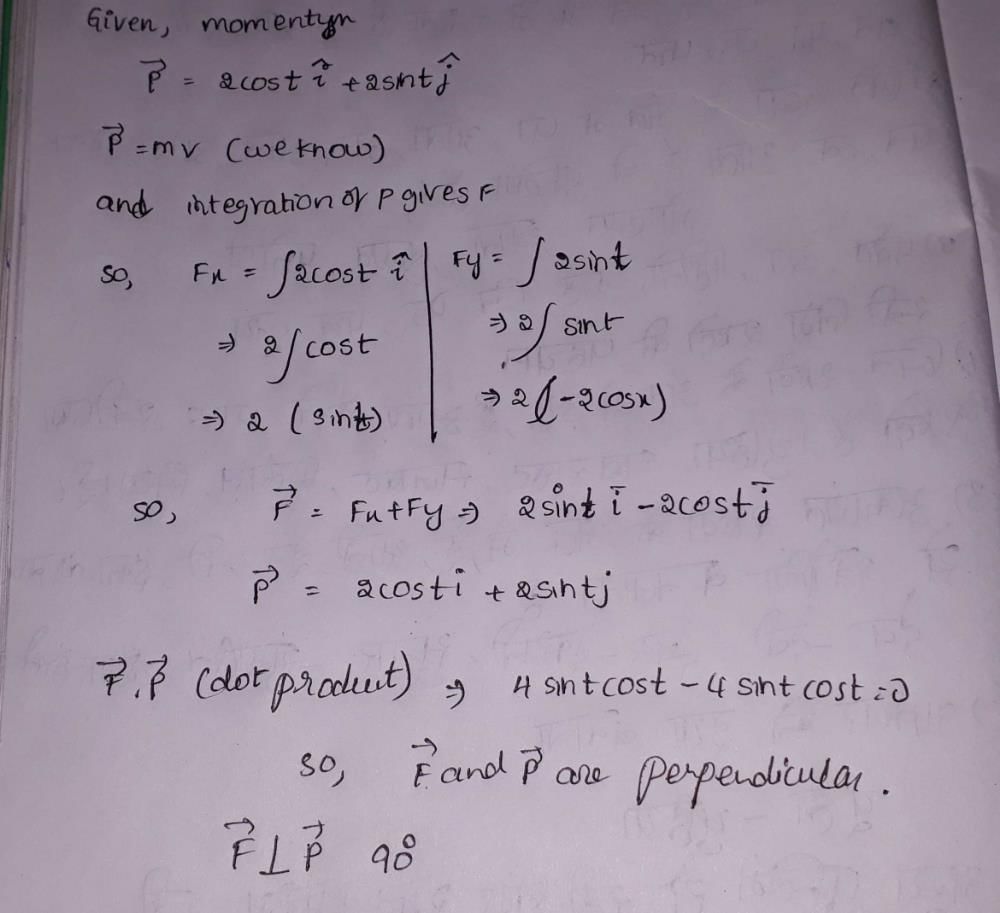 Given, momentum
P⃗ = 2cost î + 2sint ĵ
P⃗ = mv (we know)
and integration of P gives F
so, Fx = ∫2cost î | Fy = ∫ 2sint
⇒ 2∫cost | ⇒ 2∫ sint
⇒ 2 (sint) | ⇒ 2(-2cosx)
so, F⃗ = Fx+Fy ⇒ 2sint i̅ - 2cost j̅
P⃗ = 2costi + 2sintj
F⃗.P⃗ (dot product) ⇒ 4 sint cost - 4 sint cost = 0
so, F⃗ and P⃗ are perpendicular.
F⃗ ⊥ P⃗ 90°